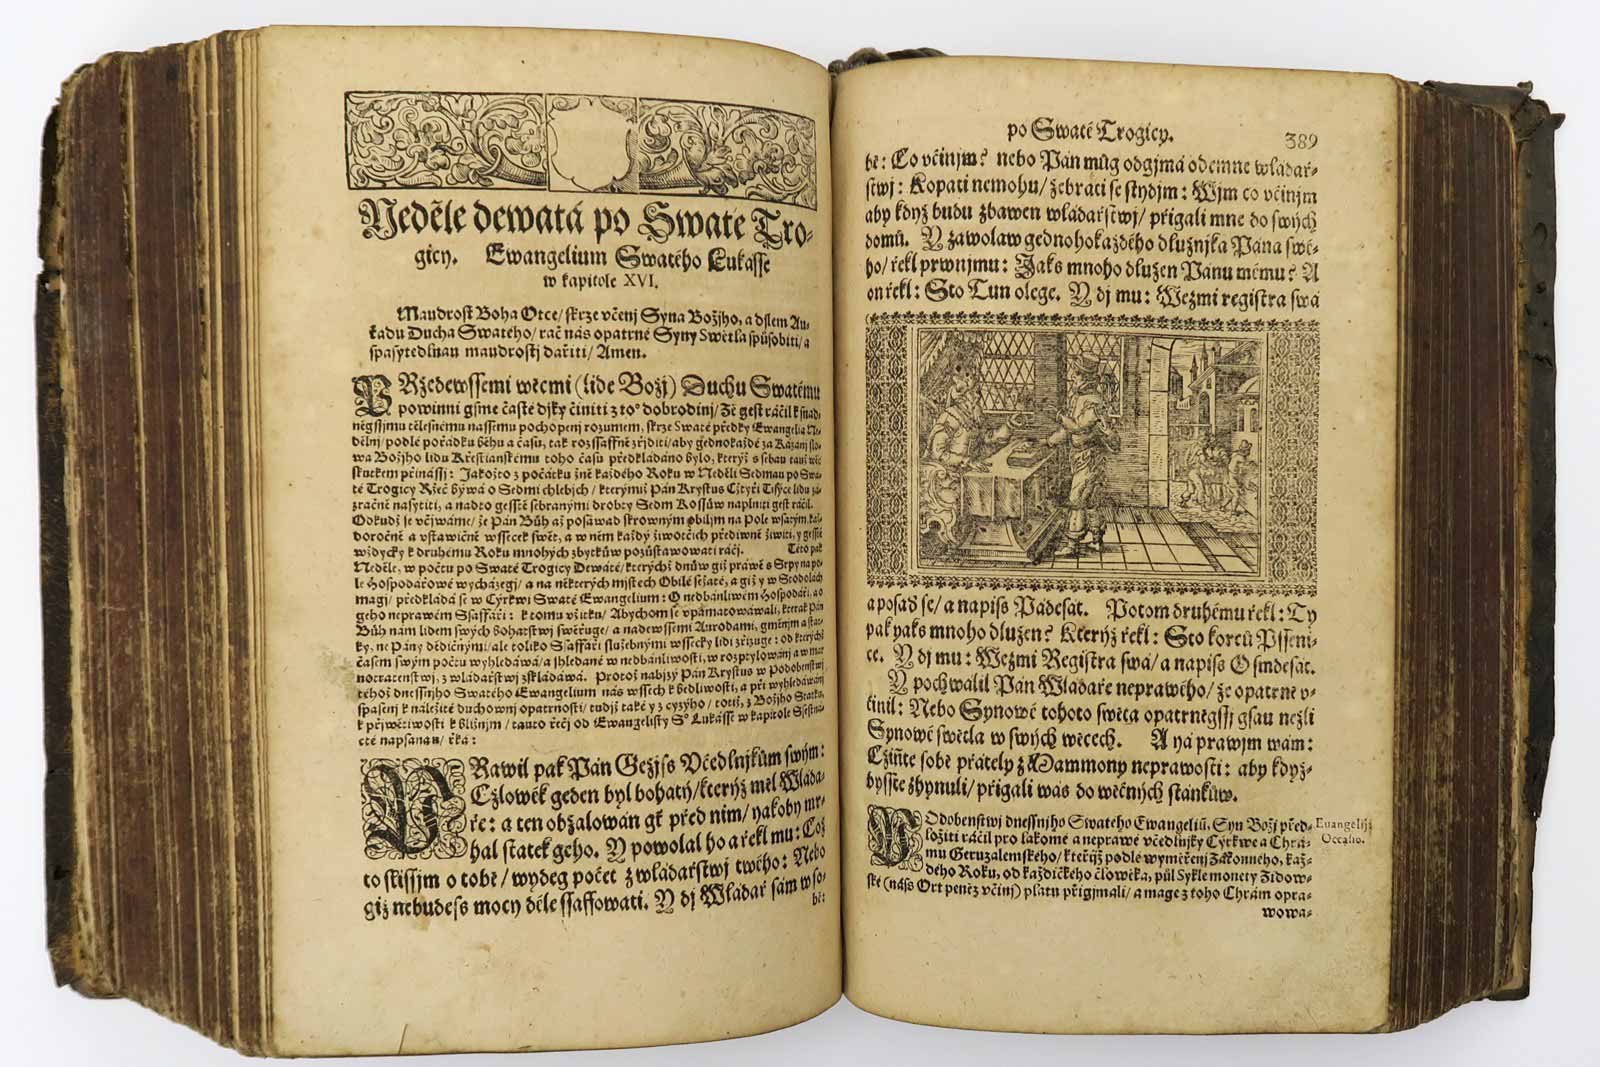 Neděle dewatá po Swate Tro-
gicy. Ewangelium Swatého Lukásse
w kapitole XVI.
Maudrost Boha Otce/ skrze včenj Syna Božjho, a djlem Au-
řadu Ducha Swatého/ rač nás opatrné Syny Swětla spůsobiti/ a
spasytedlnau maudrostj dařiti/ Amen.
PRžedewssemi wěcmi (lide Božj) Duchu Swatému
powinni gsme časté djky činiti z to° dobrodinj/ Že gest ráčil k snad-
něgssjmu tělesnému nassemu pochopenj rozumem, skrze Swaté předky Ewangelia Ne-
dělnj/ podlé pořádku běhu a času, tak rozssaffně zřjditi/ aby gednokaždé za Kázanj slo-
wa Božjho lidu Křestianskému toho času předkládáno bylo, kteryž s sebau tauž wěc
skutkem přinássj: Jakožto z počátku žně každého Roku w Neděli Sedmau po Swa-
té Trogicy Ržeč býwá o Sedmi chlebjch/ kterýmiž Pán Krystus Cžtyři Tisýce lidu zá-
zračně nasytiti, a nadto gesstě sebranými drobty Sedm Kossůw naplniti gest ráčil.
Odkudž se včjwáme/ že Pán Bůh až posawad skrowným obiljm na Pole wsatým, kaž-
doročně a vstawičně wssecek swět, a w něm každý žiwotčich přediwně žiwiti, y gesstě
wždycky k druhému Roku mnohých zbytkůw pozůstawowati ráčj. Této pak
Neděle, w počtu po Swaté Trogicy Dewáté/ kterýchž dnůw giž práwě s Srpy na po-
le Hospodářowé wycházegj/ a na některých mjstech Obilé sežaté, a giž y w Stodolách
magj/ předkládá se w Cýrkwi Swaté Ewangelium: O nedbánliwém Hospodáři, a o
geho neprawém Ssaffáři: k tomu vžitku/ Abychom se vpamatowáwali, kterak Pán
Bůh nám lidem swých bohatstwj swěřuge/ a nadewssemi Aurodami, gměnjm a statky,
ky, ne Pány dědičnými/ ale toliko Ssaffáři služebnými wssecky lidi zřizuge: od kterýchž
časem swým počtu wyhledáwá/ a shledané w nedbánliwosti, w rozptylowánj a w mar-
notratenstwj, z wládařstwj zskládáwá. Protož nabjzý Pán Krystus w Podobenstwj
téhož dnessnjho Swatého Ewangelium nás wssech k bedliwosti, a při wyhledáwánj
spasenj k náležité duchownj opatrnosti/ tudjž také y z cyzýho/ totiž, z Božjho Statku,
k přjwětiwosti k bližnjm/ tauto řečj od Ewangelisty S° Lukásse w kapitole Ssestná-
cté napsanau/ řka:
PRawil pak Pán Gežjss Včedlnjkům swým:
Cžlowěk geden byl bohatý/ kterýž měl Wláda-
ře: a ten obžalowán gest před njm/ yakoby mr-
hal statek geho. Y powolal ho a řekl mu: Což
to slissjm o tobě/ wydeg počet z wládařstwj twého: Nebo
giž nebudess mocy děle ssaffowati. Y dj Wládař sám w so-
bě:
po Swaté Trogicy.
389
bě: Co včinjm? nebo Pán můg odgjmá odemne wládař-
stwj: Kopati nemohu/ žebrati se stydjm: Wjm co včinjm
aby když budu zbawen wládařstwj/ přigali mne do swých
domů. Y zawolaw gednohokaždého dlužnjka Pána swé-
ho/ řekl prwnjmu: Jaks mnoho dlužen Pánu mému? A
on řekl: Sto Tun olege. Y dj mu: Wezmi registra swá
a posaď se/ a napiss Padesát. Potom druhému řekl: Ty
pak yaks mnoho dlužen? Kterýž řekl: Sto korců Pssenice.
ce. Y dj mu: Wezmi Registra swá/ a napiss Osmdesát.
Y pochwálil Pán Wládaře neprawého/ že opatrně v-
činil: Nebo Synowé tohoto swěta opatrněgssj gsau nežli
Synowé swětla w swých wěcech. A yá prawjm wám:
Cžiňte sobě přátely z Mammony neprawosti: aby když-
bysste zhynuli/ přigali wás do wěčných stánkůw.
POdobenstwj dnessnjho Swatého Ewangeliū, Syn Božj před-
ložiti ráčil pro lakomé a neprawé včedlnjky Cýrkwe a Chrá-
mu Geruzalemského/ kteřjž podlé wyměřenj Zákonného, kaž-
dého Roku, od každičkého člowěka, půl Sykle monety Židow-
ské (náss Ort peněz včinj) platu přigjmali/ a mage z toho Chrám opra-
wowa-
Euangelij
Occasio.